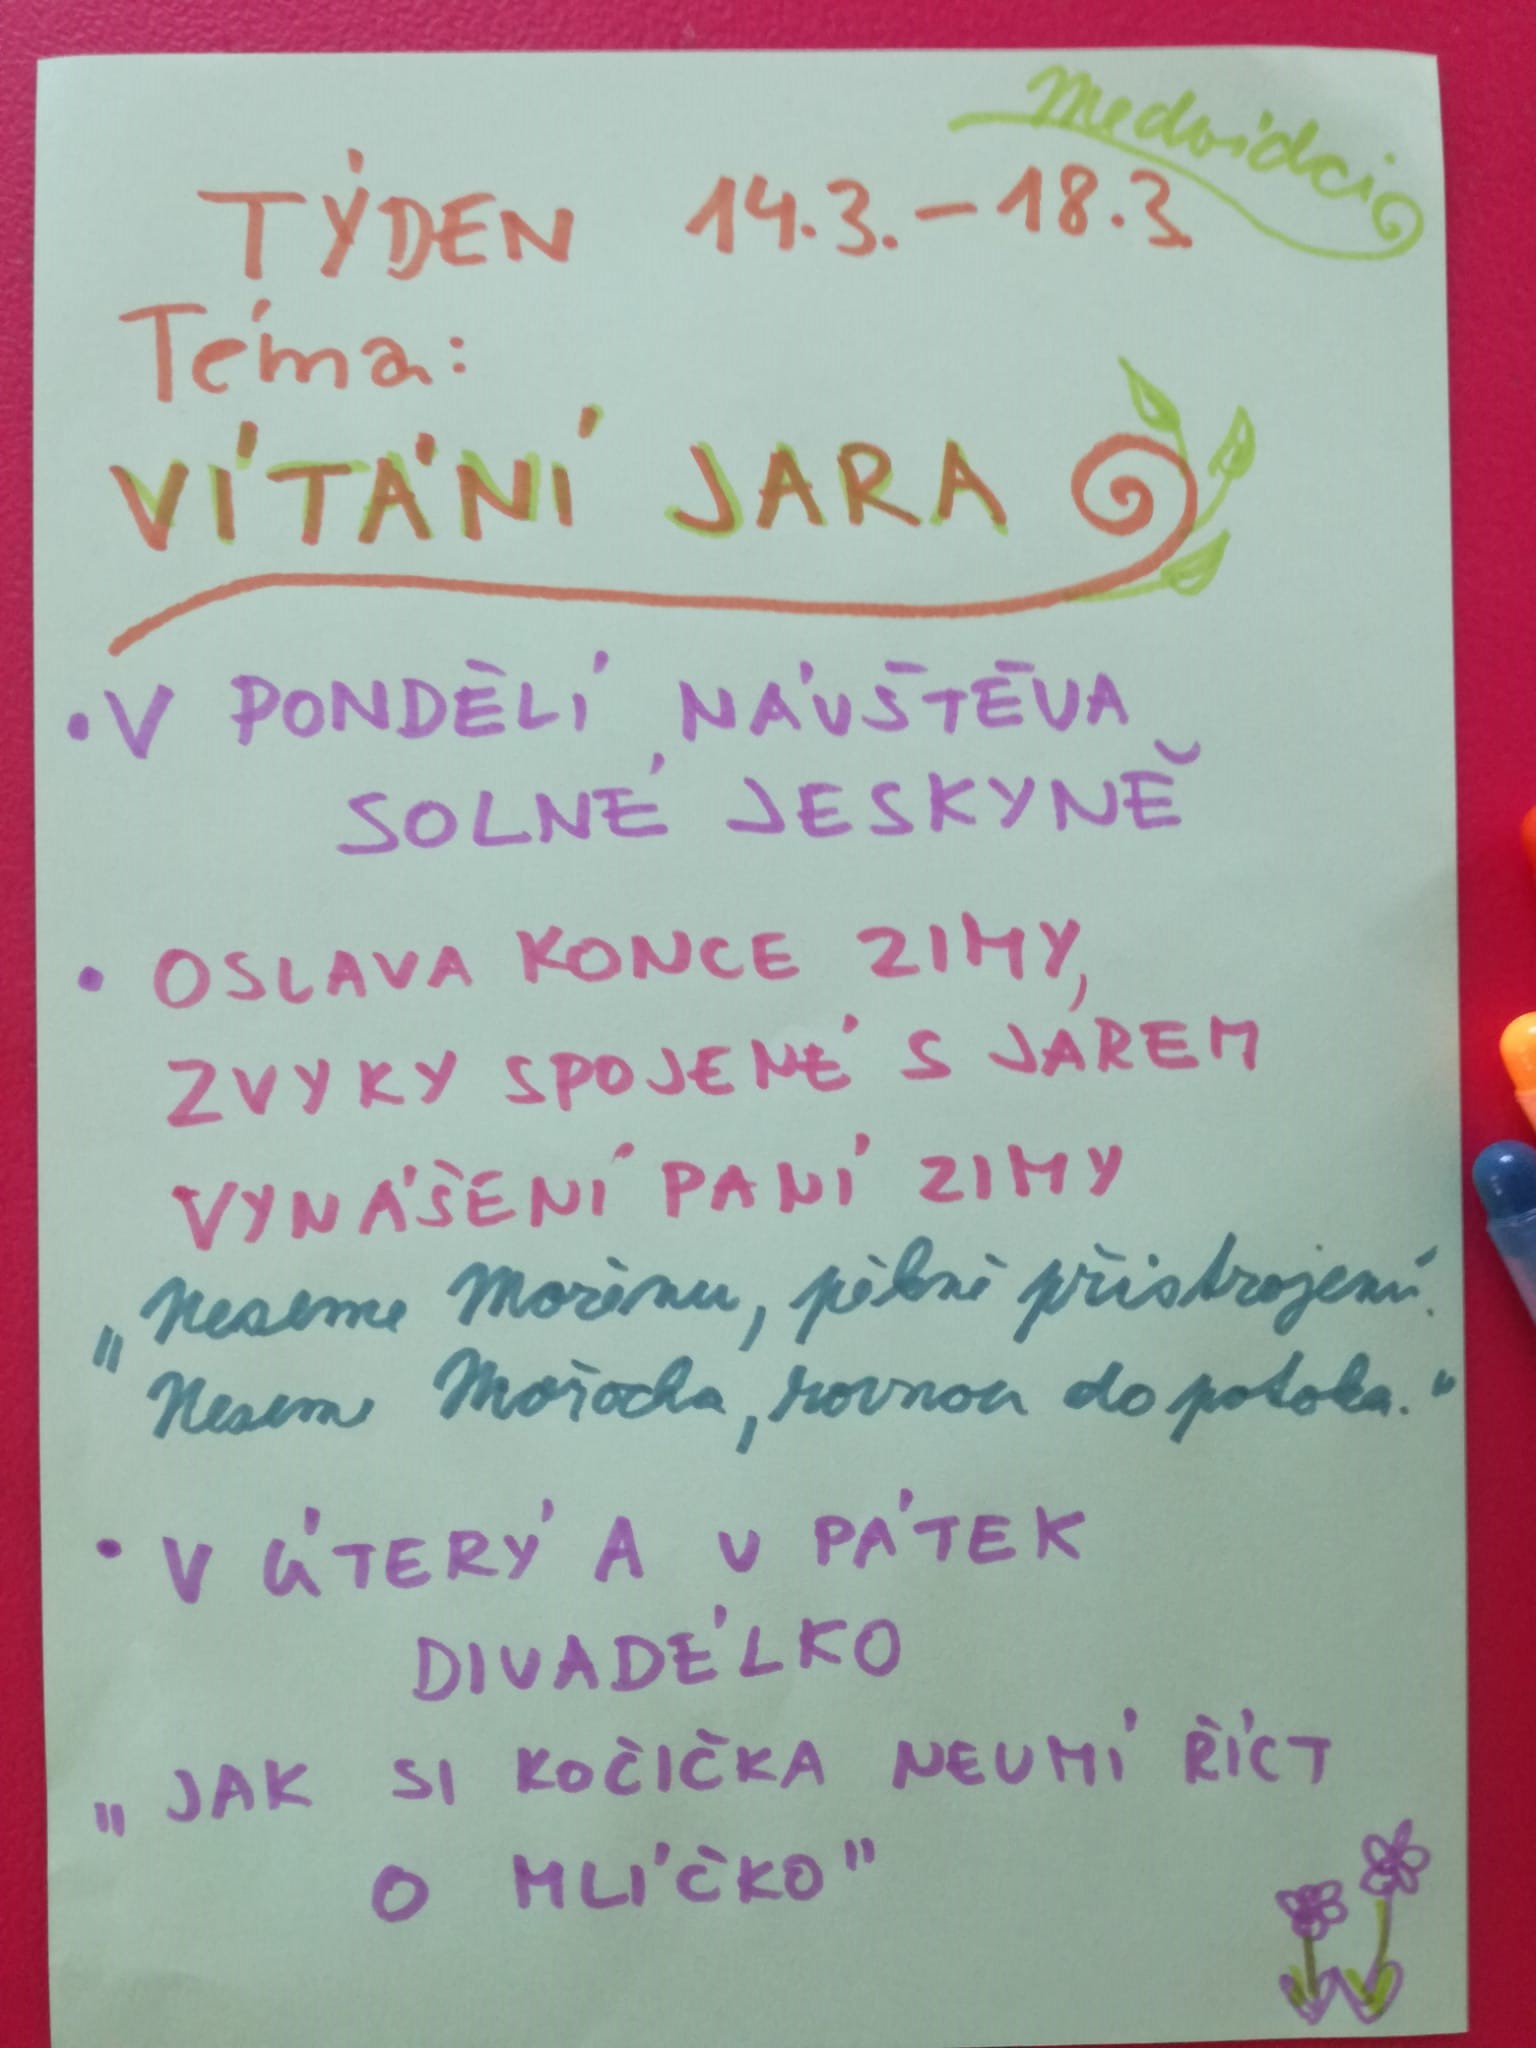 Medvídci
TÝDEN 14.3.-18.3.
Téma:
VÍTÁNÍ JARA
• V PONDĚLÍ NÁVŠTĚVA
SOLNÉ JESKYNĚ
• OSLAVA KONCE ZIMY,
ZVYKY SPOJENÉ S JAREM
VYNÁŠENÍ PANÍ ZIMY
„Neseme Mořenu, pěkně přistrojenú.
Neseme Mořocha, rovnou do potoka."
• V ÚTERÝ A V PÁTEK
DIVADÉLKO
„JAK SI KOČIČKA NEUMÍ ŘÍCT
O MLÍČKO"